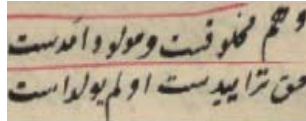 وهم مخلوقست ومولود آمدست
حق نزاییدست او لم یولداست